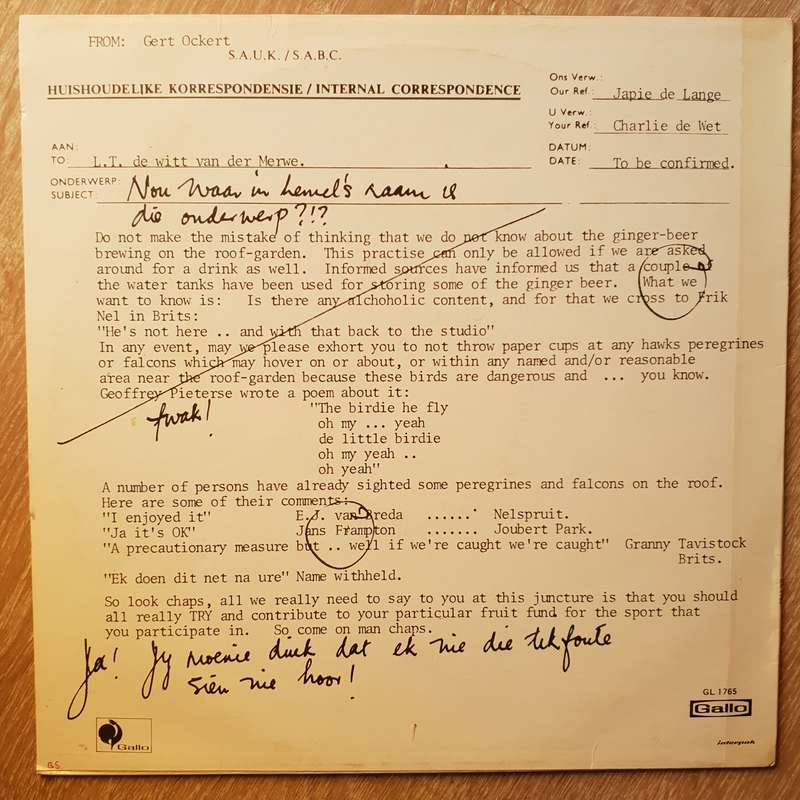 FROM: Gert Ockert
S.A.U.K./S.A.B.C.
HUISHOUDELIKE KORRESPONDENSIE/INTERNAL CORRESPONDENCE
Ons Verw.:
Our Ref.: Japie de Lange
U Verw.:
Your Ref.: Charlie de Wet
AAN:
TO L.T. de witt van der Merwe.
DATUM:
DATE: To be confirmed.
ONDERWERP:
SUBJECT Nou waar in hemel's naam is
die onderwerp?!?
Do not make the mistake of thinking that we do not know about the ginger-beer
brewing on the roof-garden. This practise can only be allowed if we are asked
around for a drink as well. Informed sources have informed us that a couple of
the water tanks have been used for storing some of the ginger beer. What we
want to know is: Is there any alchoholic content, and for that we cross to Frik
Nel in Brits:
"He's not here .. and with that back to the studio"
In any event, may we please exhort you to not throw paper cups at any hawks peregrines
or falcons which may hover on or about, or within any named and/or reasonable
area near the roof-garden because these birds are dangerous and ... you know.
Geoffrey Pieterse wrote a poem about it:
twak!
"The birdie he fly
oh my ... yeah
de little birdie
oh my yeah ..
oh yeah"
A number of persons have already sighted some peregrines and falcons on the roof.
Here are some of their comments:
"I enjoyed it" E.J. van Breda ...... Nelspruit.
"Ja it's OK" Jans Frampton ....... Joubert Park.
"A precautionary measure but .. well if we're caught we're caught" Granny Tavistock
Brits.
"Ek doen dit net na ure" Name withheld.
So look chaps, all we really need to say to you at this juncture is that you should
all really TRY and contribute to your particular fruit fund for the sport that
you participate in. So come on man chaps.
Ja! Jy moenie dink dat ek nie die tikfoute
sien nie hoor!
GL 1765
Gallo
Gallo
interpak
GS